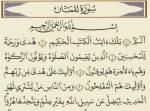 سُورَةُ لُقۡمَانَ
بِسۡمِ ٱللَّهِ ٱلرَّحۡمَٰنِ ٱلرَّحِيمِ
الٓمٓ ۝ تِلۡكَ ءَايَٰتُ ٱلۡكِتَٰبِ ٱلۡحَكِيمِ ۝ هُدٗى وَرَحۡمَةٗ
لِّلۡمُحۡسِنِينَ ۝ ٱلَّذِينَ يُقِيمُونَ ٱلصَّلَوٰةَ وَيُؤۡتُونَ ٱلزَّكَوٰةَ
وَهُم بِٱلۡأٓخِرَةِ هُمۡ يُوقِنُونَ ۝ أُوْلَٰٓئِكَ عَلَىٰ هُدٗى مِّن رَّبِّهِمۡۖ
وَأُوْلَٰٓئِكَ هُمُ ٱلۡمُفۡلِحُونَ ۝ وَمِنَ ٱلنَّاسِ مَن يَشۡتَرِي
لَهۡوَ ٱلۡحَدِيثِ لِيُضِلَّ عَن سَبِيلِ ٱللَّهِ بِغَيۡرِ عِلۡمٖ وَيَتَّخِذَهَا هُزُوًاۚ